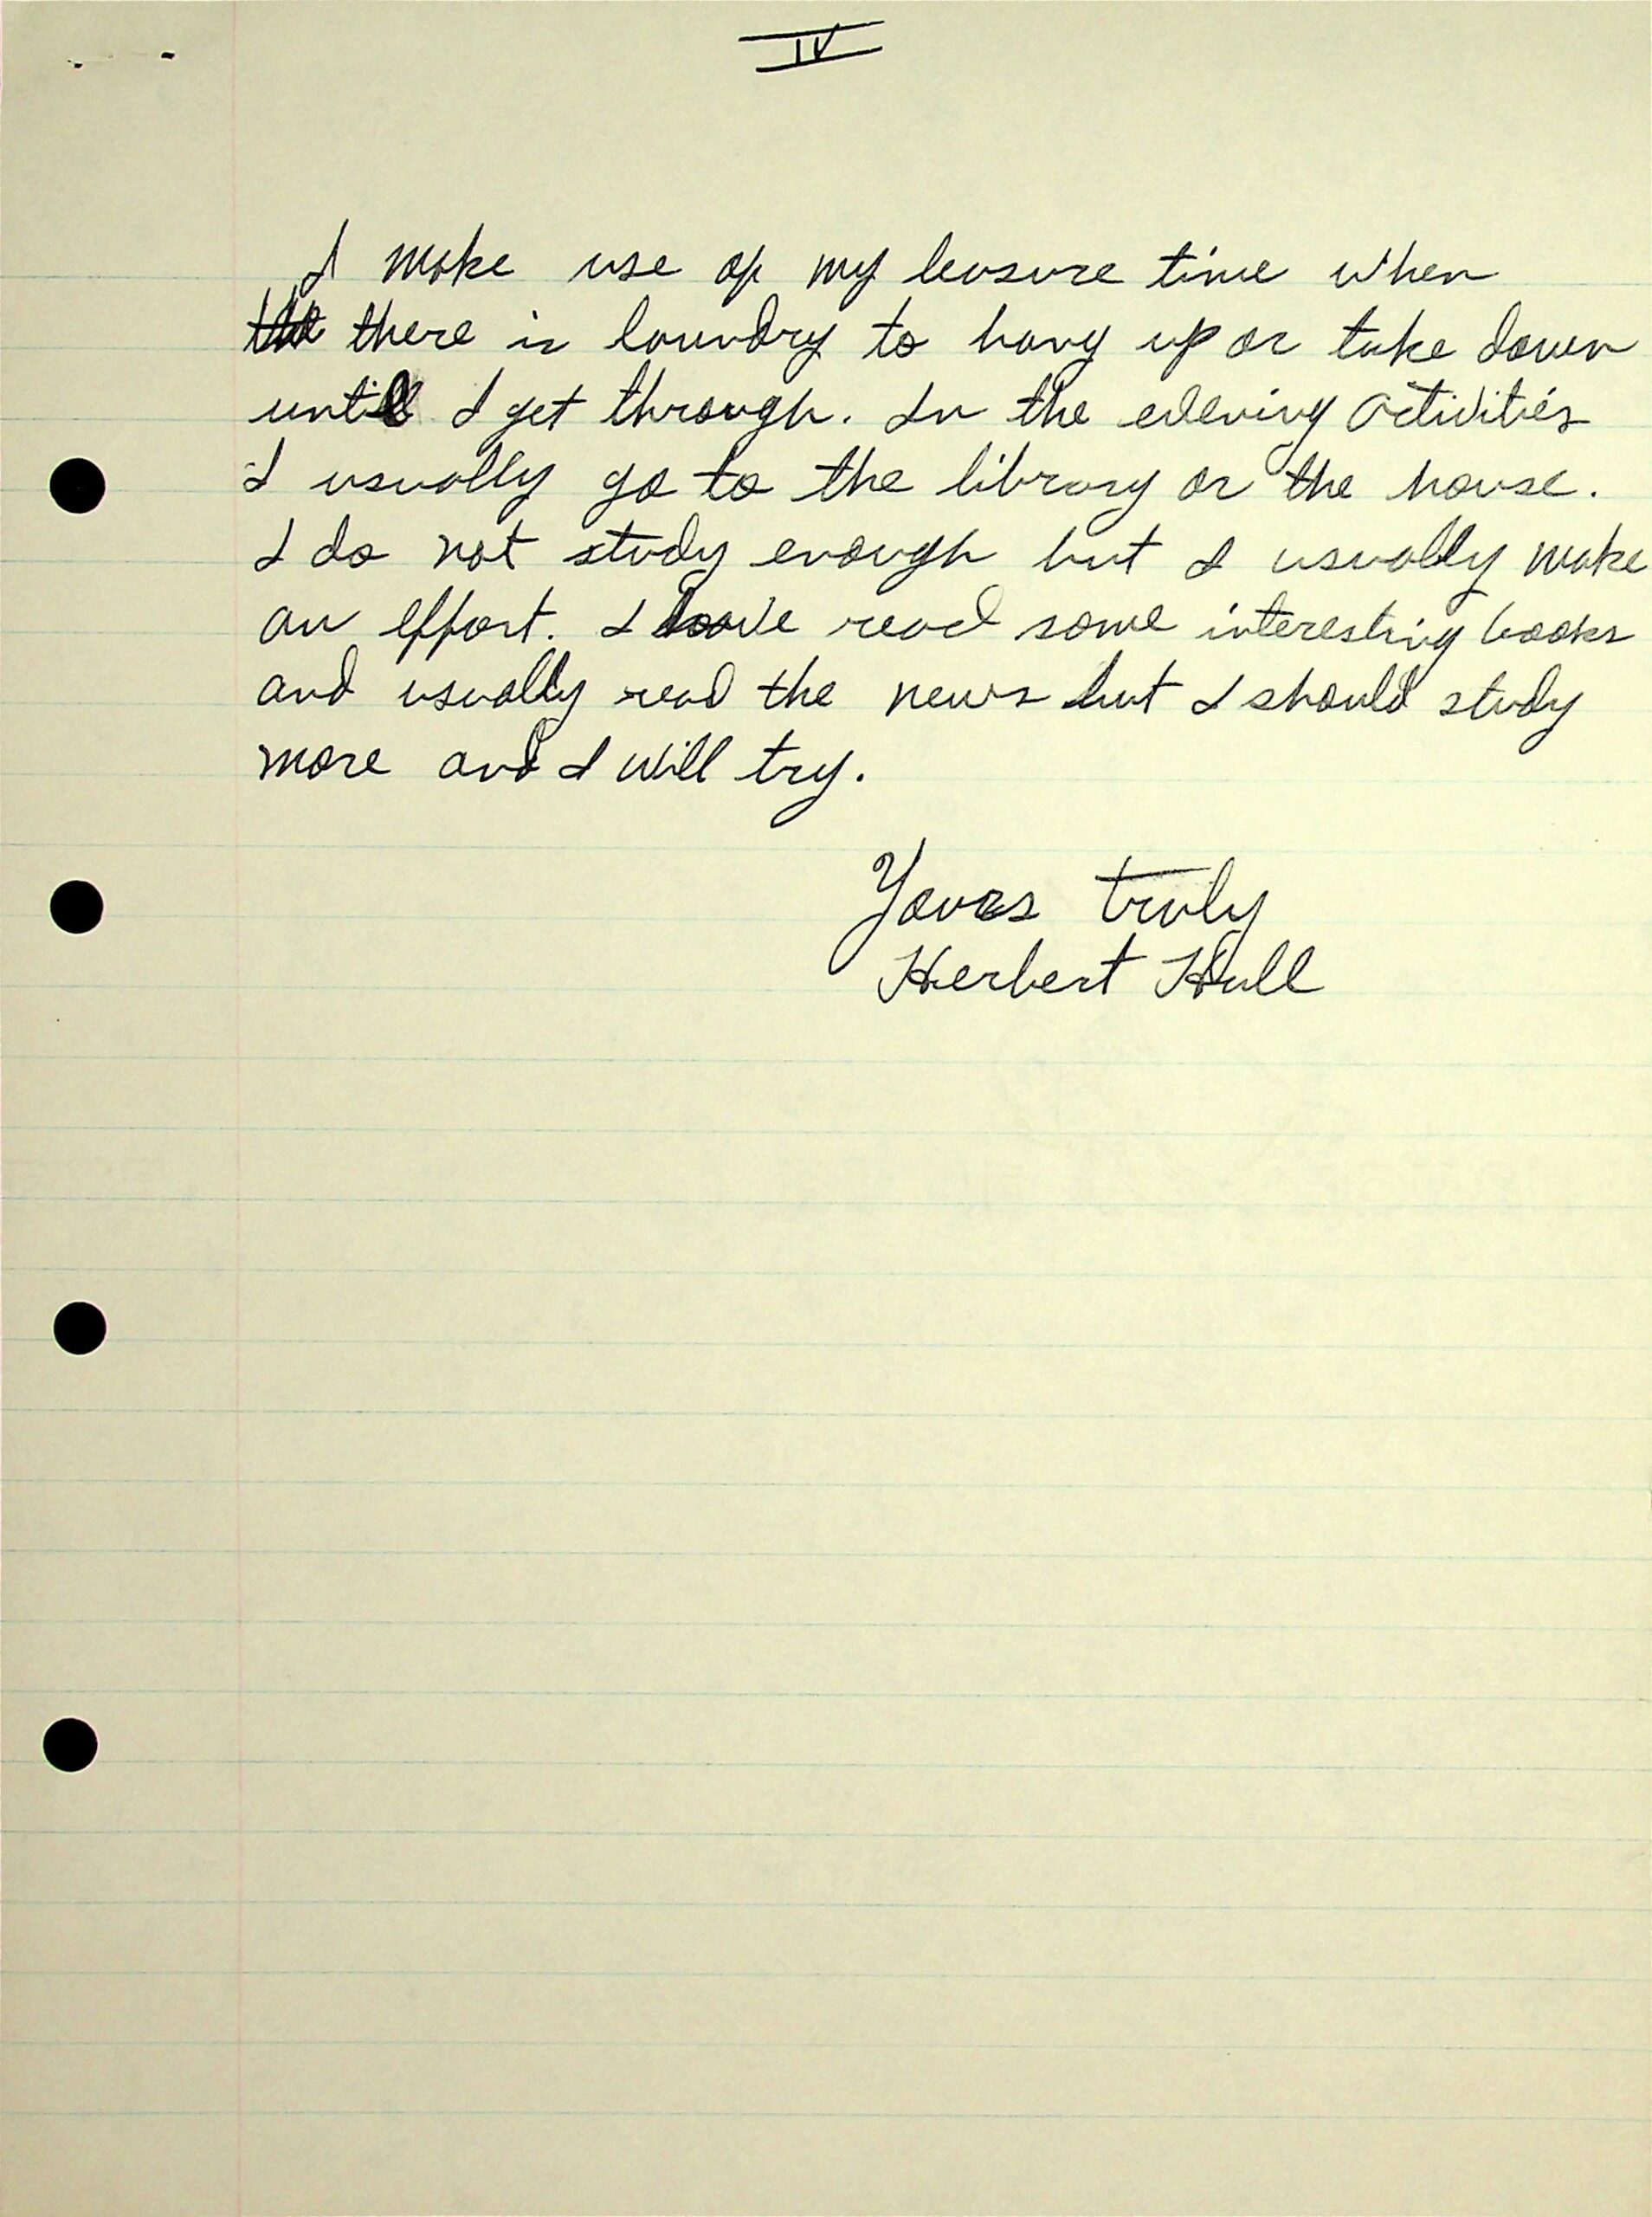 IV
I make use of my leasure time when
there is laundry to hang up or take down
until I get through. In the evening activities
I usually go to the library or the house.
I do not study enough but I usually make
an effort. I have read some interesting books
and usually read the news but I should study
more and I will try.
Yours truly
Herbert Hull